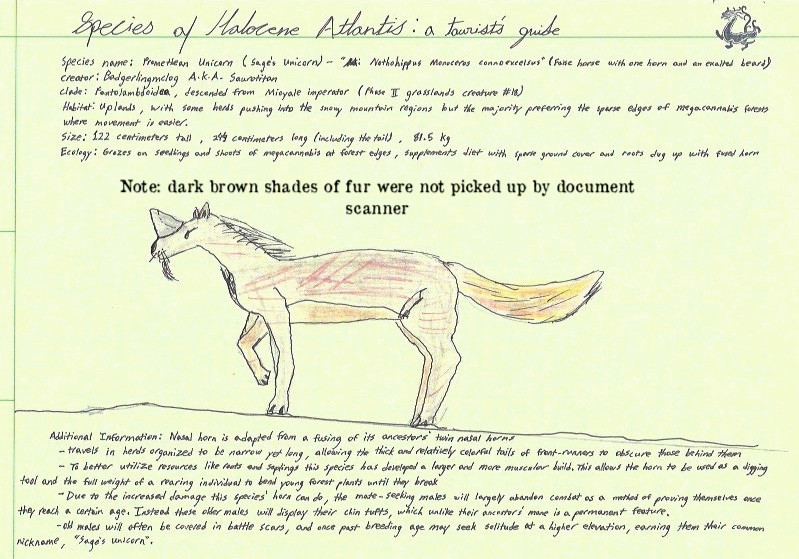 Species of Halocene Atlantis: a tourist's guide
Species name: Promethean Unicorn (Sage's Unicorn) - " Nothohippus Monoceros connoexcelsus" (False horse with one horn and an exalted beard)
creator: Badgerlingmclog A.K.A. Saurotitan
clade: Pantolambdoidea, descended from Mioyale imperator (Phase II grasslands creature #18)
Habitat: Uplands, with some herds pushing into the snowy mountain regions but the majority preferring the sparse edges of megacannabis forests
where movement is easier.
Size: 122 centimeters tall, centimeters long (including the tail), 81.5 kg
Ecology: Grazes on seedlings and shoots of megacannabis at forest edges, supplements diet with sparse ground cover and roots dug up with fused horn
Note: dark brown shades of fur were not picked up by document
scanner
Additional Information: Nasal horn is adapted from a fusing of its ancestors' twin nasal horns
- travels in herds organized to be narrow yet long, allowing the thick and relatively colorful tails of front-runners to obscure those behind them
- To better utilize resources like roots and saplings this species has developed a larger and more muscular build. This allows the horn to be used as a digging
tool and the full weight of a rearing individual to bend young forest plants until they break
- Due to the increased damage this species' horn can do, the mate-seeking males will largely abandon combat as a method of proving themselves once
they reach a certain age. Instead these older males will display their chin tufts, which unlike their ancestors' mane is a permanent feature.
- old males will often be covered in battle scars, and once past breeding age may seek solitude at a higher elevation, earning them their common
nickname, "Sage's unicorn".